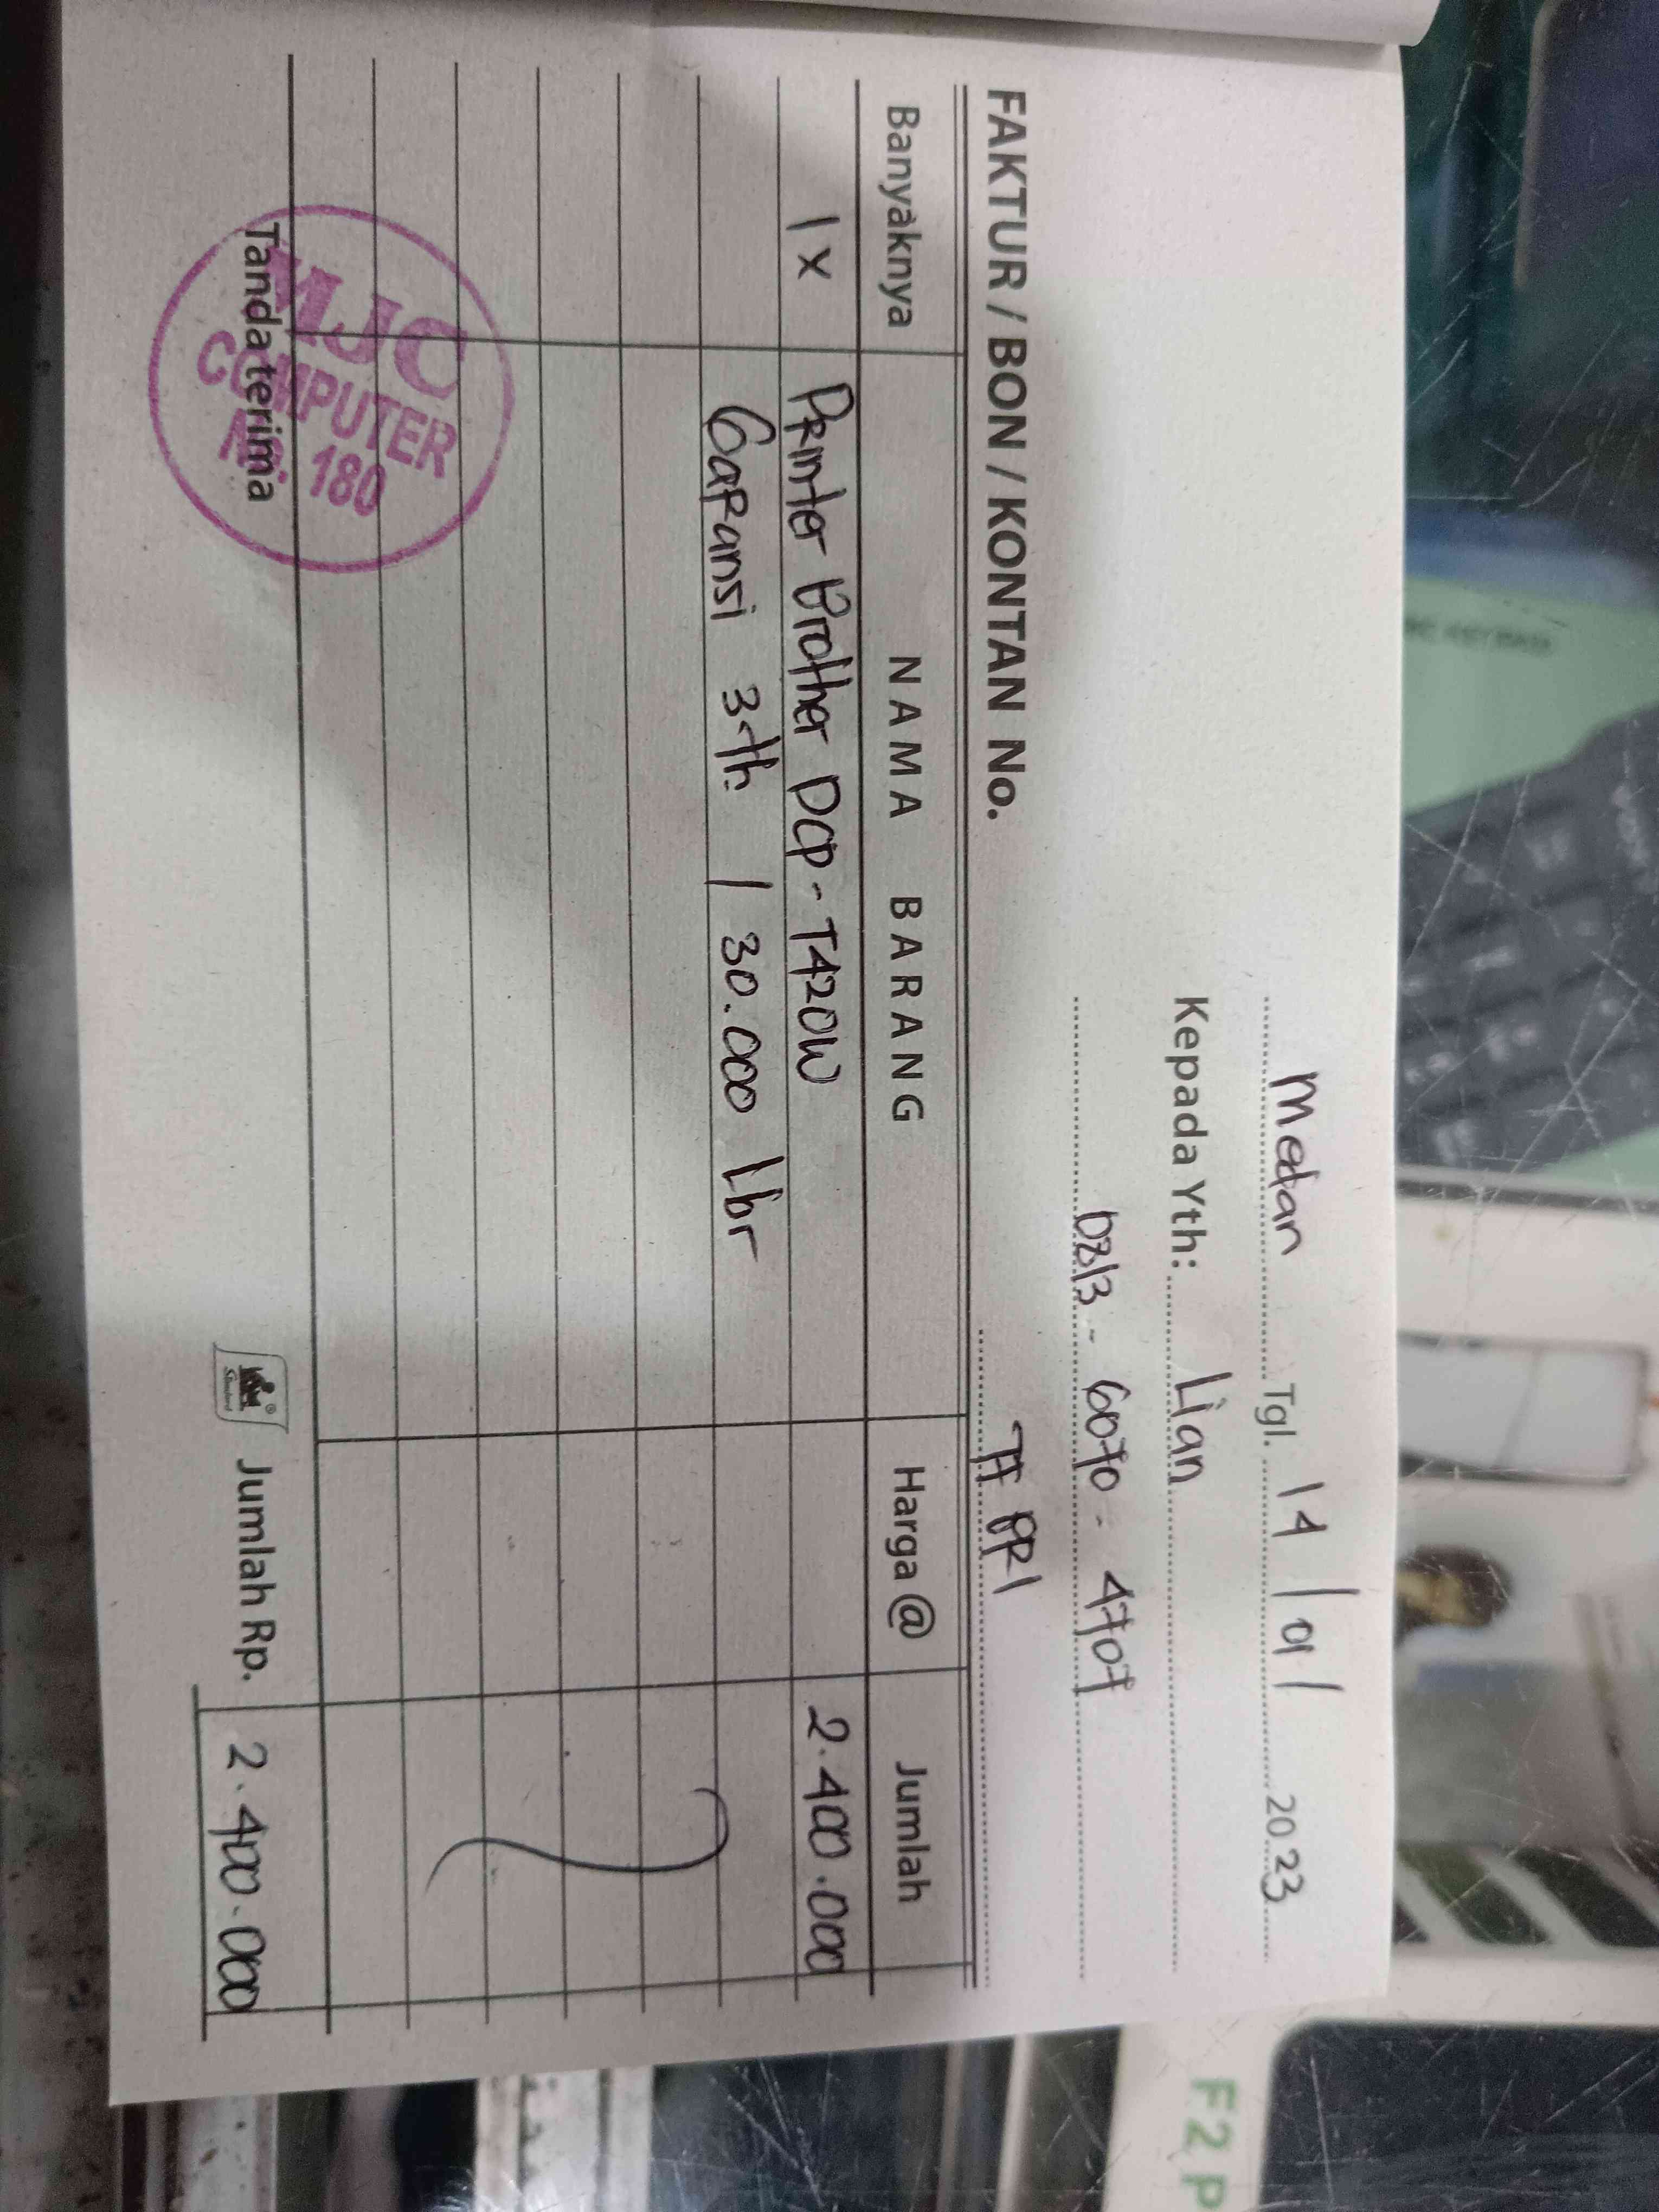 Medan Tgl. 14/01/ 2023
Kepada Yth: Lian
0813 - 6070 - 4707
FAKTUR / BON / KONTAN No. TF BRI
Banyaknya NAMA BARANG Harga @ Jumlah
1 x Printer Brother DCP-T420W 2.400.000
Garansi 3 th / 30.000 lbr
Tanda terima Jumlah Rp. 2.400.000
MJC
COMPUTER
NO. 180
F2 P